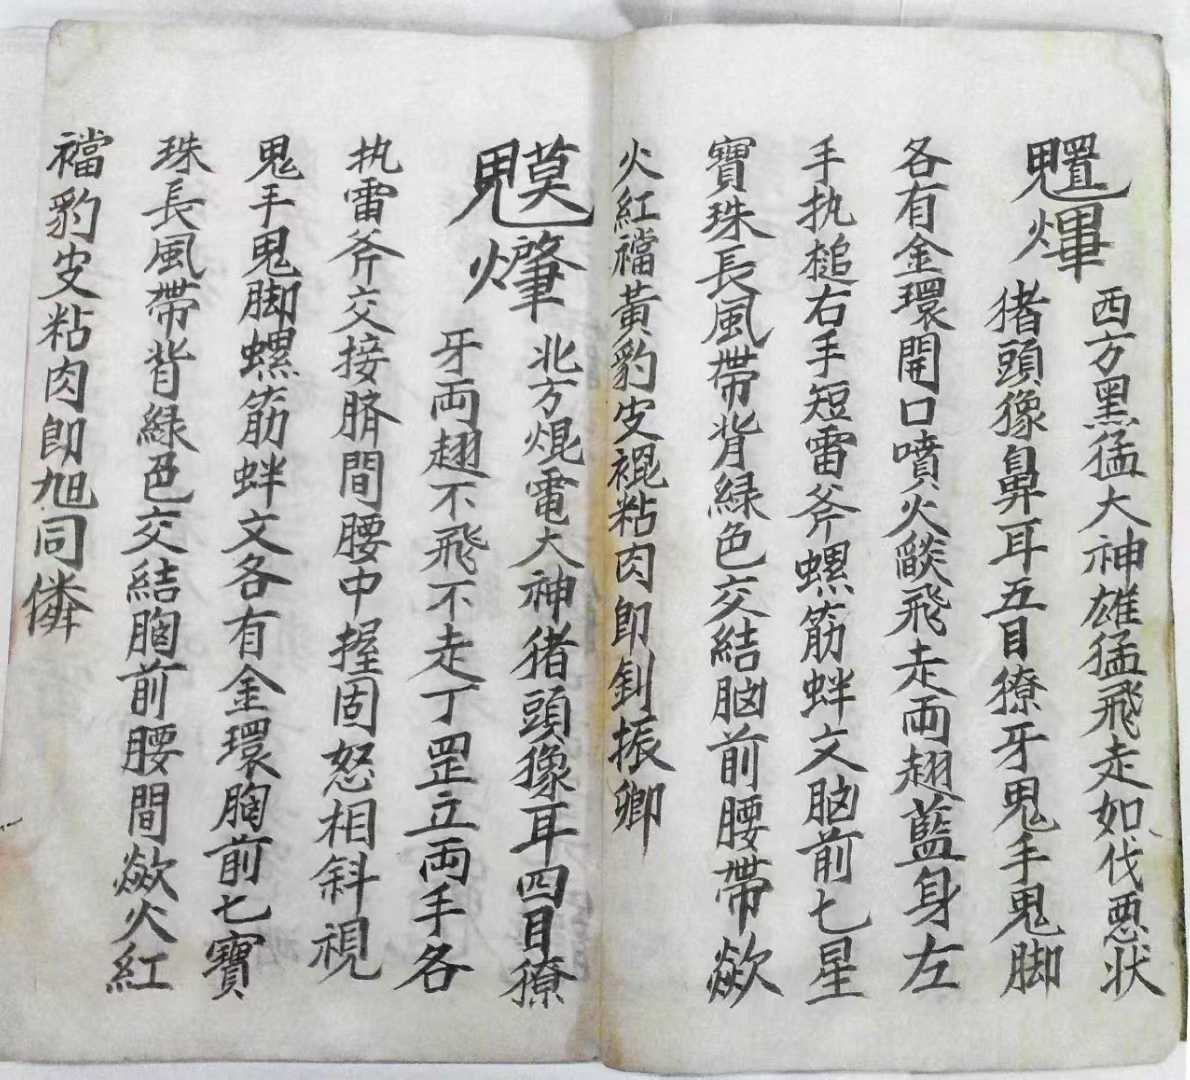 西方黑猛大神雄猛飛走如伐惡状
猪頭像鼻耳五目獠牙鬼手鬼脚
各有金環開口噴火燄飛走両翅藍身左
手执槌右手短雷斧螺筋蚌文脑前七星
寶珠長風帶背緑色交結脑前腰帶歘
火紅襠黃豹皮裩粘肉即釗振卿
北方焜電大神猪頭像耳四目獠
牙両翅不飛不走丁罡立両手各
执雷斧交接臍間腰中握固怒相斜視
鬼手鬼脚螺筋蚌文各有金環胸前七寶
珠長風帶背緑色交結胸前腰間歘火紅
襠豹皮粘肉即旭同僯